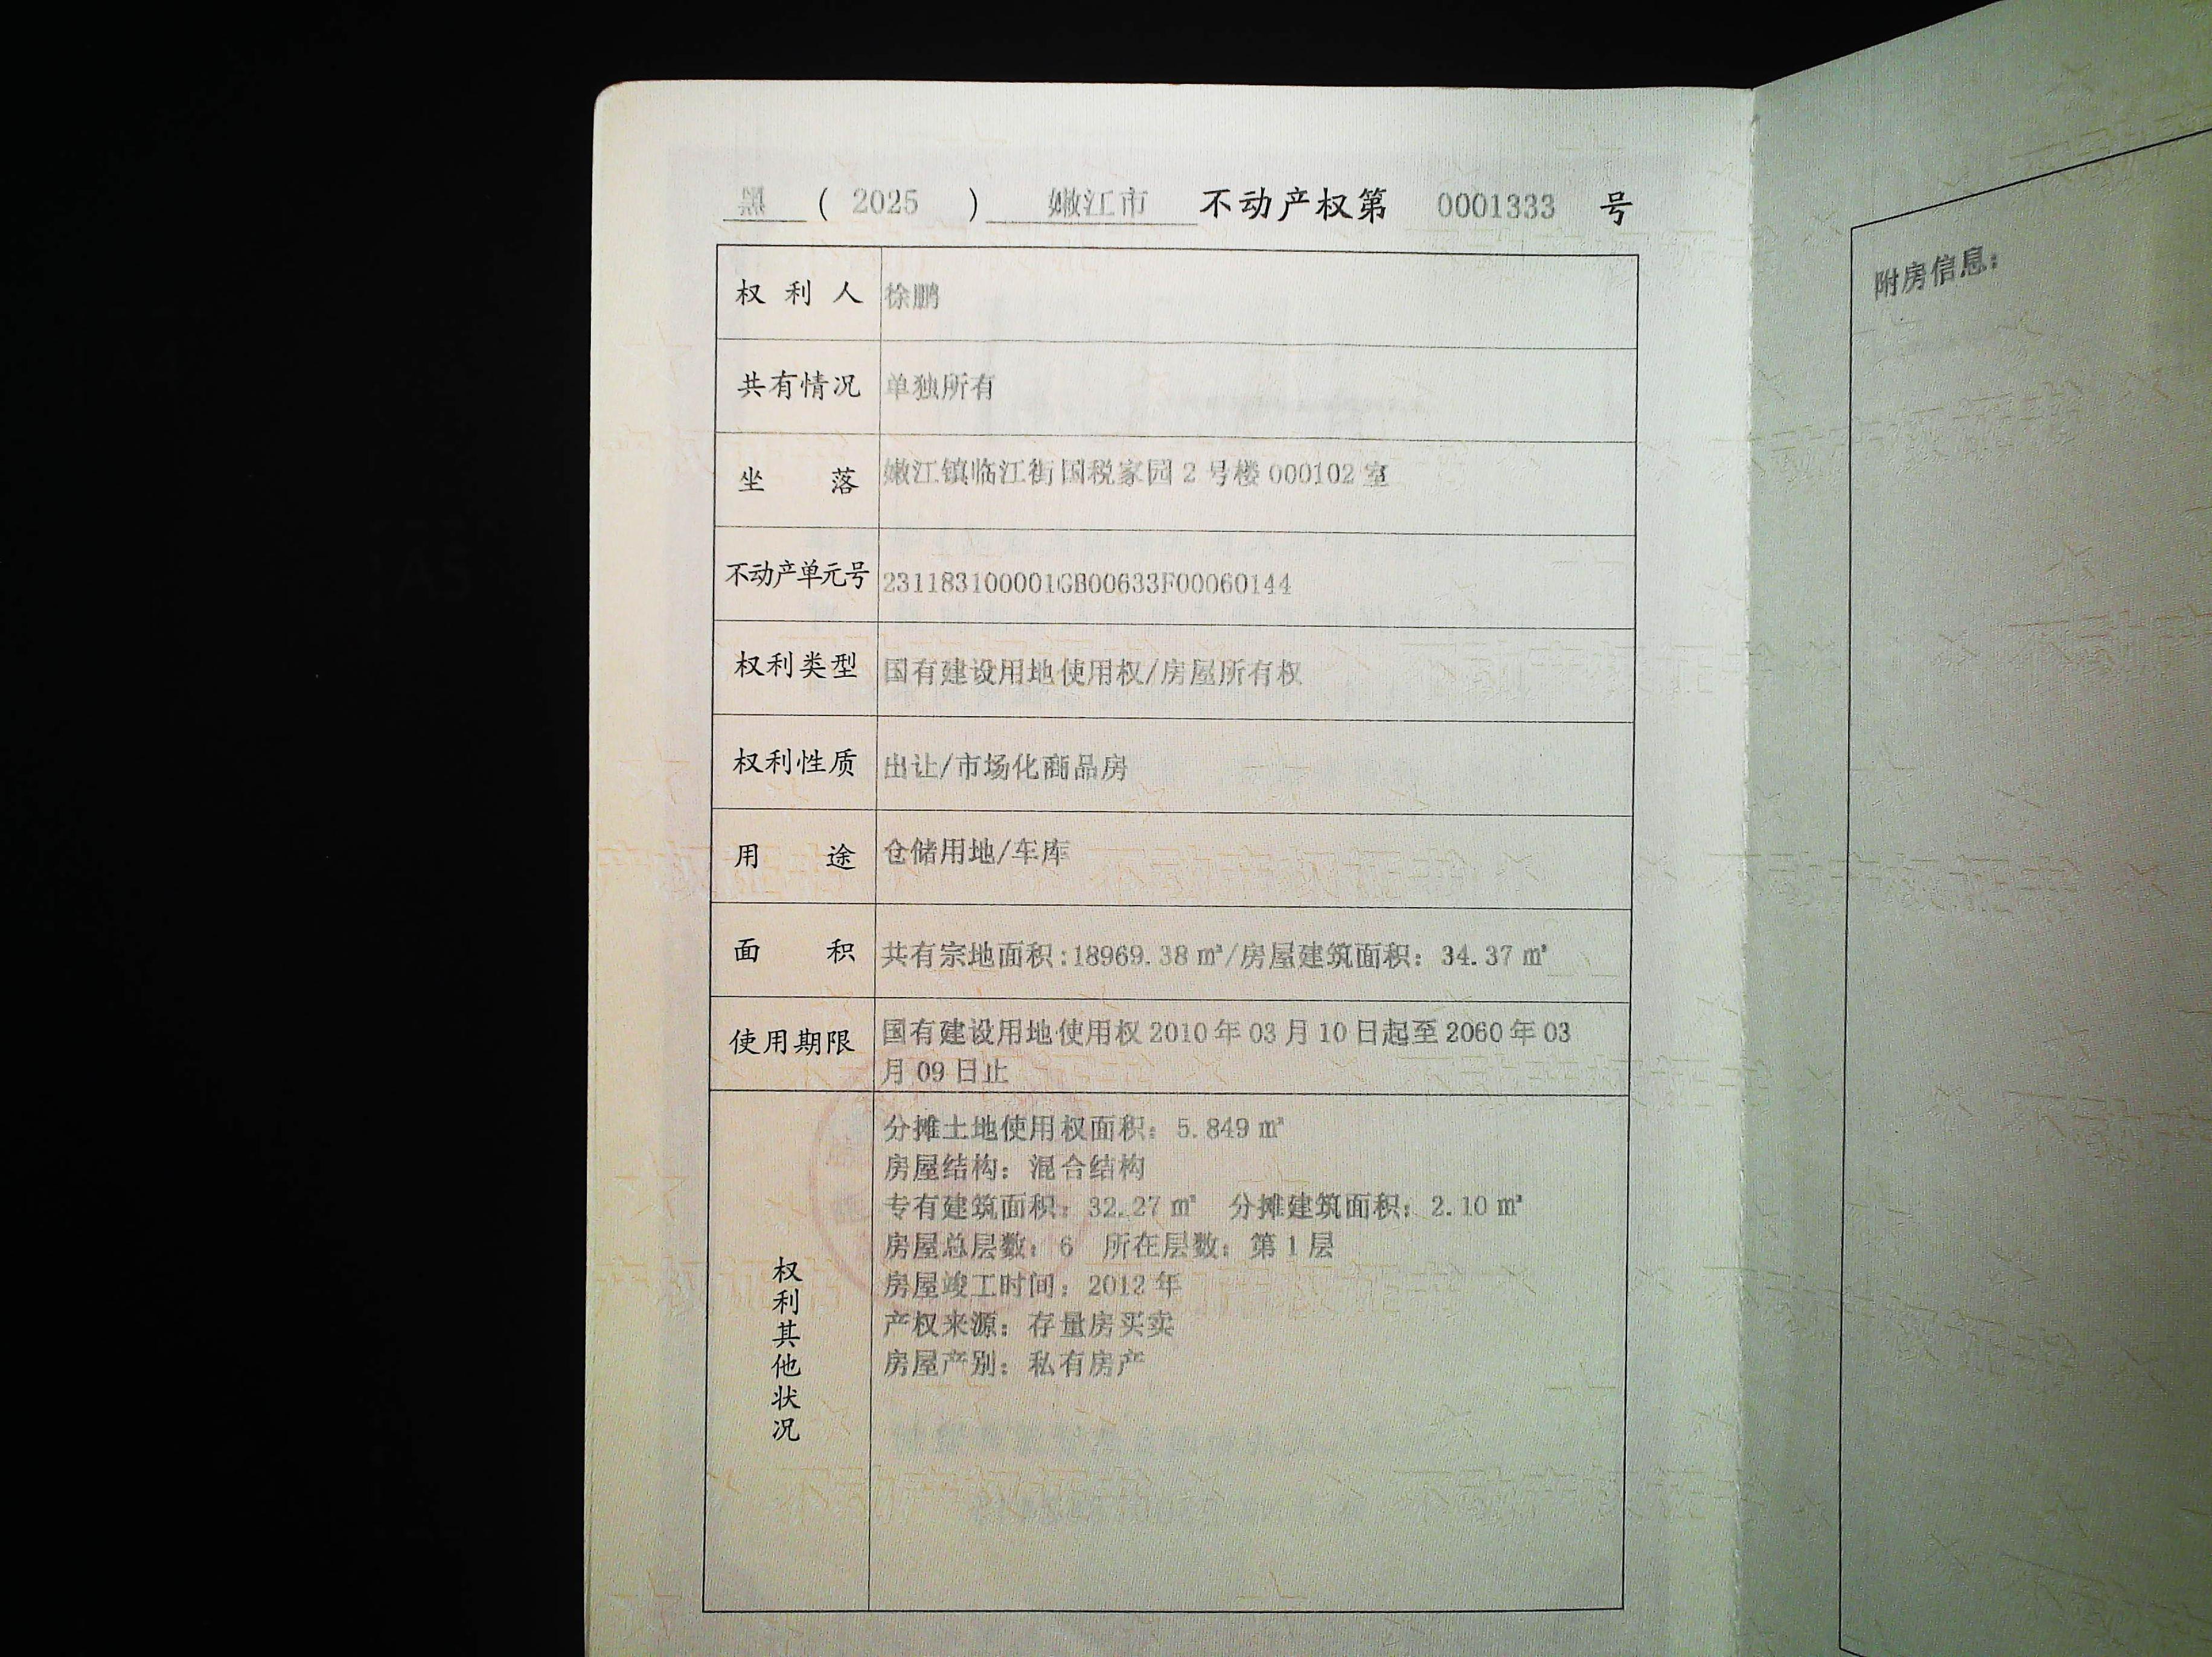 黑 ( 2025 ) 嫩江市 不动产权第 0001333 号
权利人 徐鹏
共有情况 单独所有
坐落 嫩江镇临江街国税家园 2 号楼 000102 室
不动产单元号 231183100001GB00633F00060144
权利类型 国有建设用地使用权/房屋所有权
权利性质 出让/市场化商品房
用途 仓储用地/车库
面积 共有宗地面积:18969.38 ㎡/房屋建筑面积：34.37 ㎡
使用期限 国有建设用地使用权 2010 年 03 月 10 日起至 2060 年 03
月 09 日止
权利其他状况
分摊土地使用权面积：5.849 ㎡
房屋结构：混合结构
专有建筑面积：32.27 ㎡ 分摊建筑面积：2.10 ㎡
房屋总层数：6 所在层数：第 1 层
房屋竣工时间：2012 年
产权来源：存量房买卖
房屋产别：私有房产
附房信息：